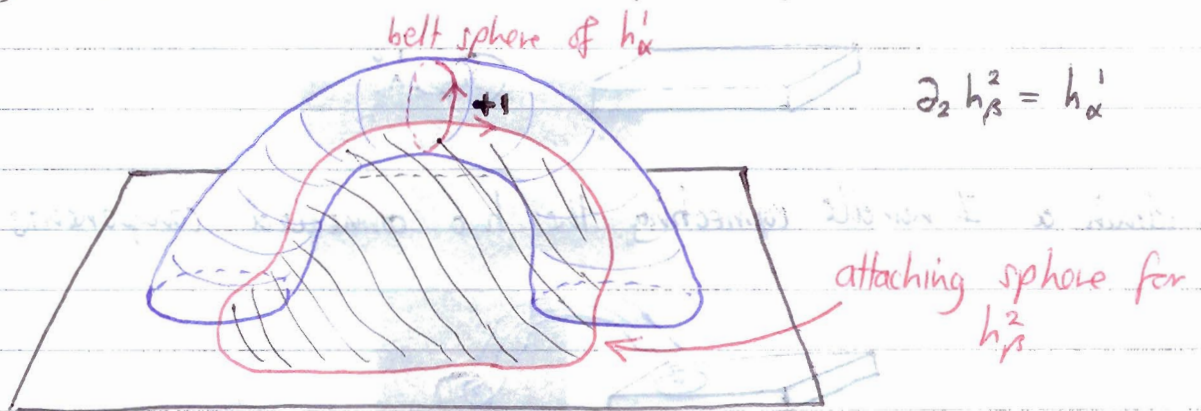 belt sphere of h¹α
+1
∂₂ h²β = h¹α
attaching sphere for
h²β